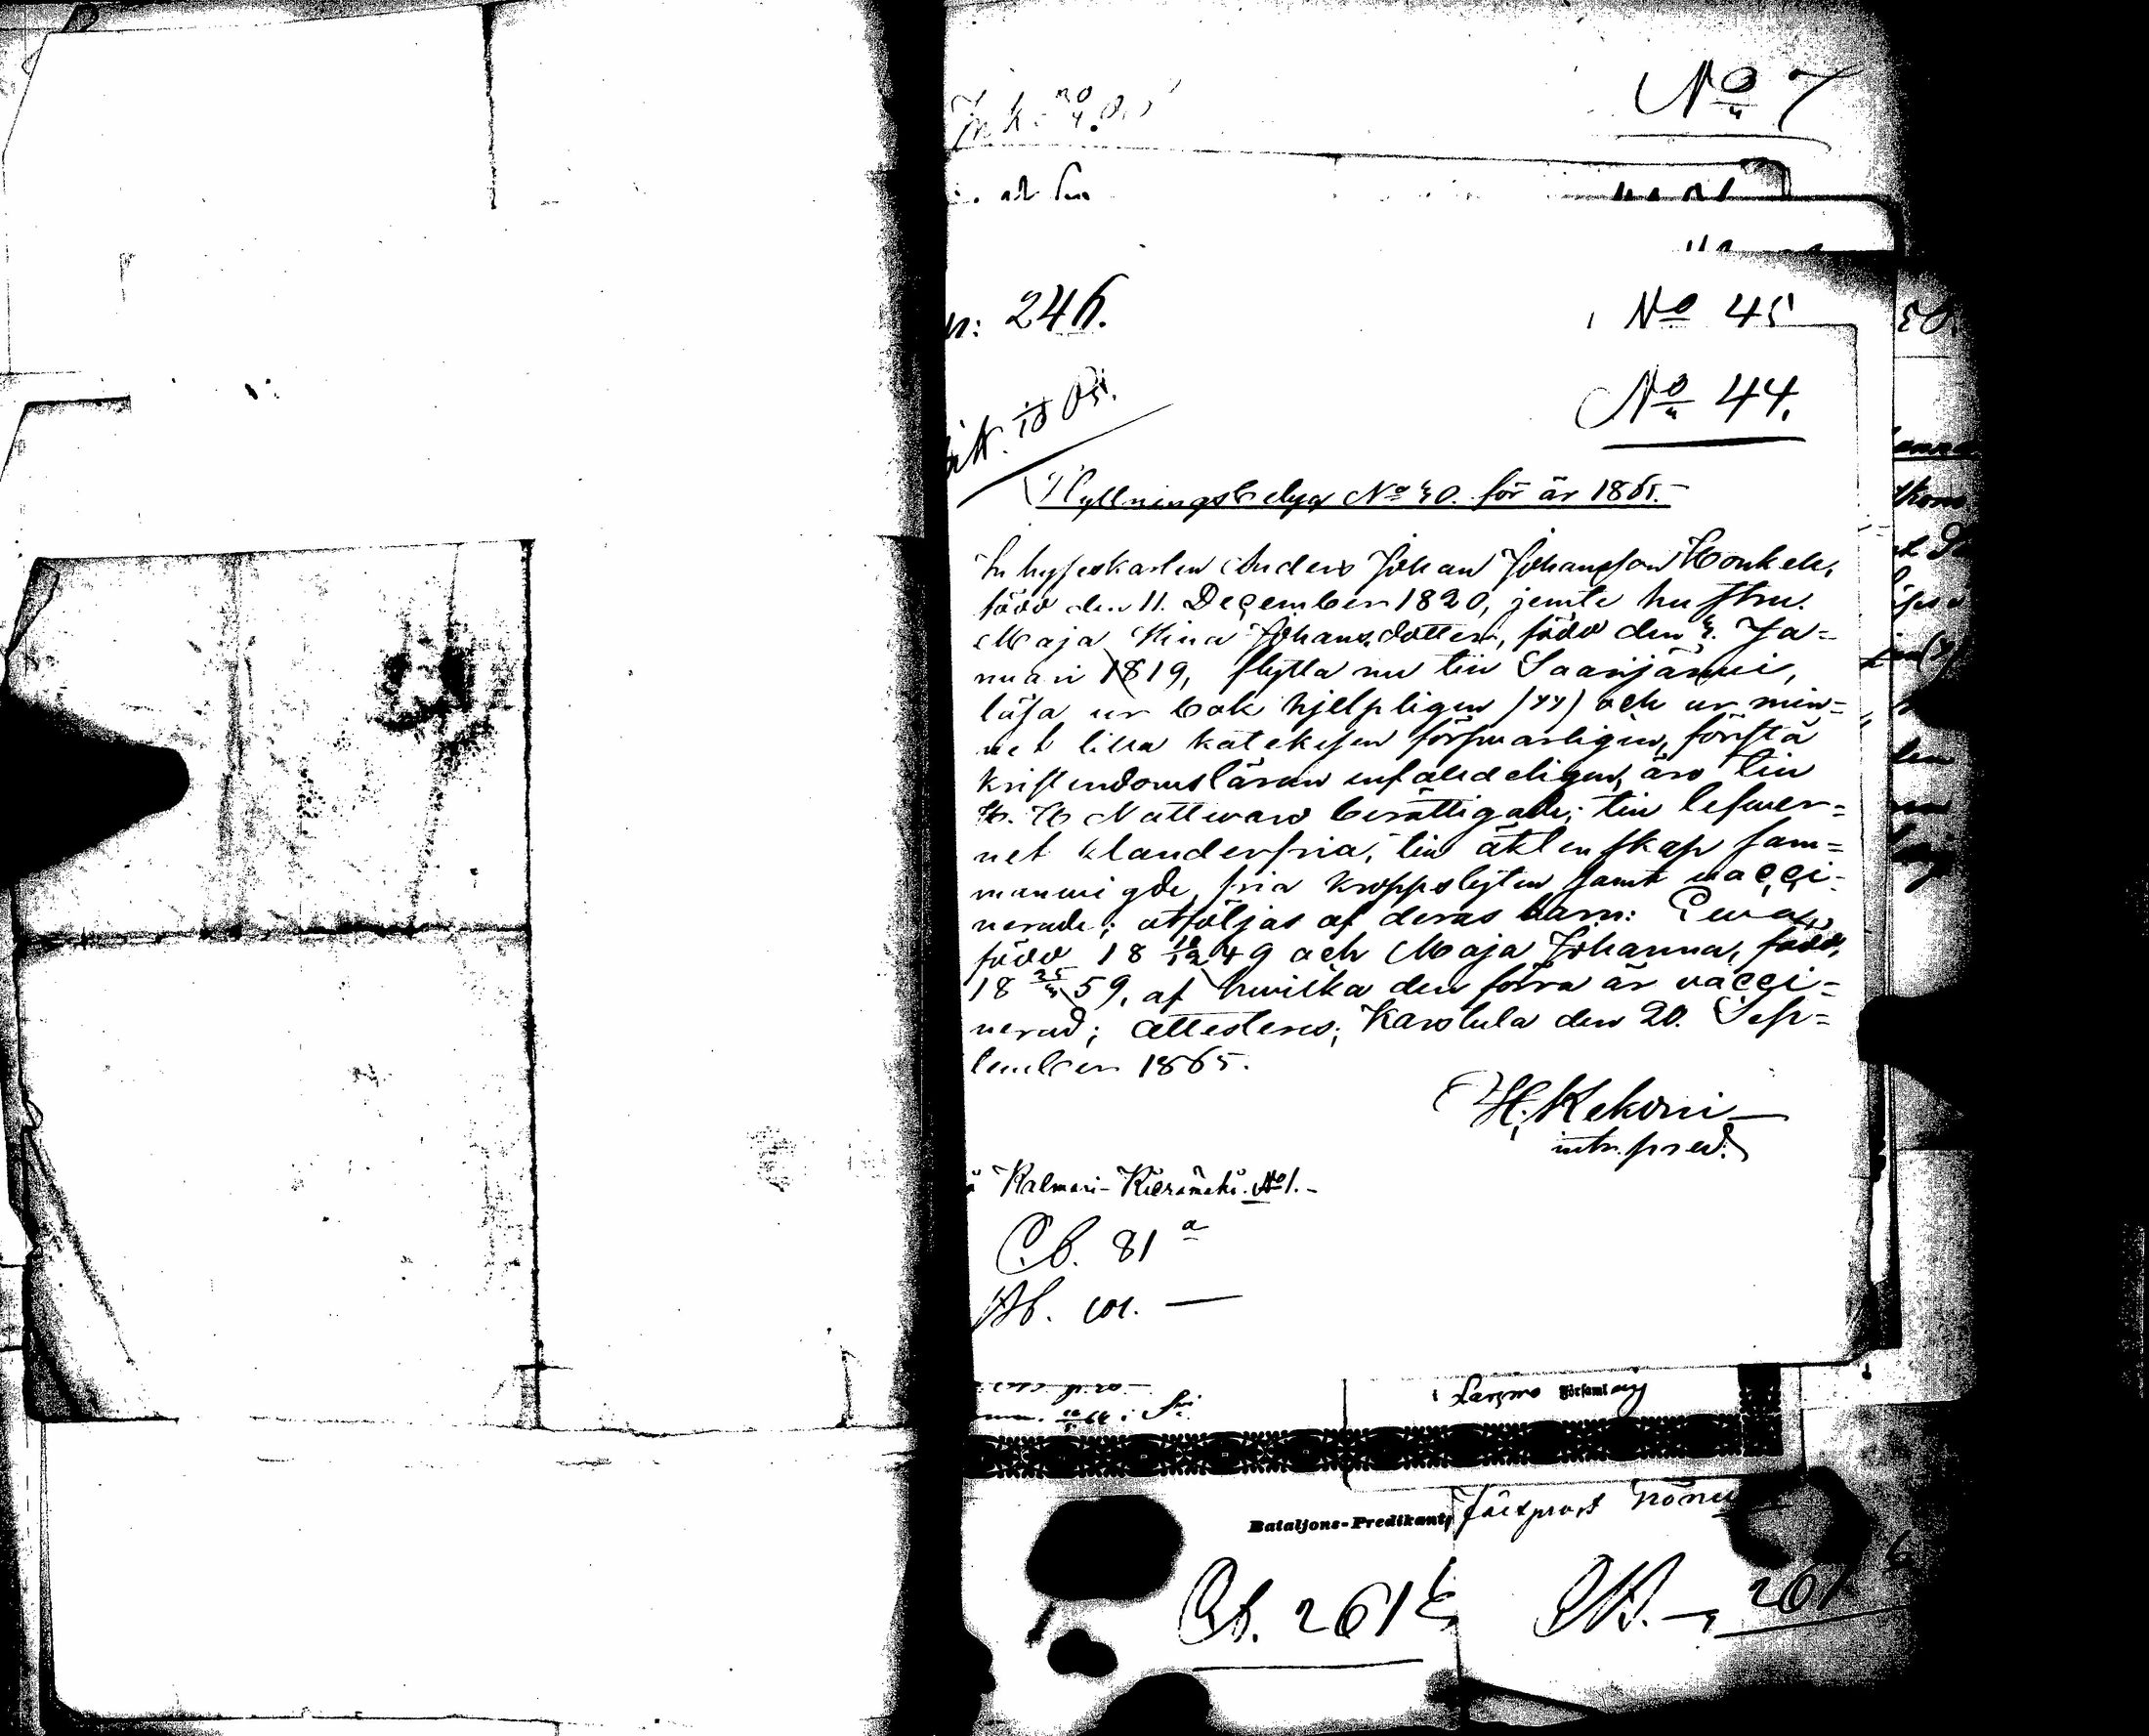 No 7
n: 246.
No 45
No 44.
Flyttningsbetyg No 40. för år 1865.-
Inhyseskarlen Anders Johan Johansson Honkela,
född den 11. December 1820, jemte hustru
Maja Stina Johansdotter, född den 4. Ja=
nuari 1819, flytta nu till Saarijärvi,
läsa ur bok hjelpligen (yy) och ur min=
net lilla katekesen försvarligen, förstå
kristendomsläran enfaldeligen, äro till
H. H Nattward berättigade; till lefwer=
net klanderfria, till äktenskap sam=
manwigde, fria kroppslyten samt vacci=
nerade; åtföljas af deras barn: Ewa,
född 18 18/12 49 och Maja Johanna, född,
18 25/4 59, af hwilka den förra är vacci=
nerad; attesteras; Karstula den 20. Sep=
tember 1865.
H. Kekoni
intr. pred.
Kalmari- No 1.-
Cb. 81 a
Ab. col. —
i Larsmo Församling
Bataljons-Predikant,
Cb. 261
261